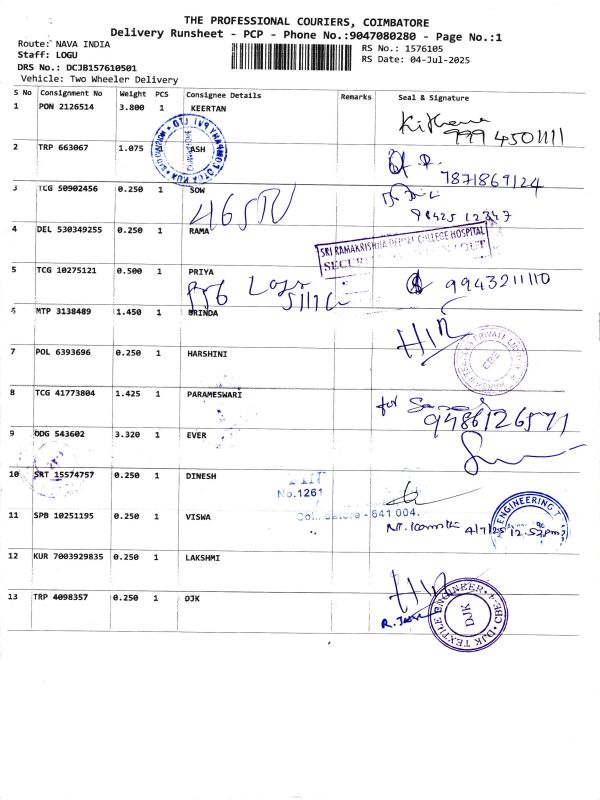 THE PROFESSIONAL COURIERS, COIMBATORE
Delivery Runsheet - PCP - Phone No.:9047080280 - Page No.:1
Route: NAVA INDIA
Staff: LOGU
DRS No.: DCJB157610501
Vehicle: Two Wheeler Delivery
RS No.: 1576105
RS Date: 04-Jul-2025
S No Consignment No Weight PCS Consignee Details Remarks Seal & Signature
1 PON 2126514 3.800 1 KEERTAN
999 4501111
2 TRP 663067 1.075 1 ASH
7871869124
3 TCG 50902456 0.250 1 SOW
98425 12347
4 DEL 530349255 0.250 1 RAMA
SRI RAMAKRISHNA DENTAL COLLEGE HOSPITAL
5 TCG 10275121 0.500 1 PRIYA
9943211110
6 MTP 3138489 1.450 1 BRINDA
7 POL 6393696 0.250 1 HARSHINI
PRIVATE
CBE
8 TCG 41773804 1.425 1 PARAMESWARI
for
9486126571
9 ODG 543602 3.320 1 EVER
10 SRT 15574757 0.250 1 DINESH
No.1261
11 SPB 10251195 0.250 1 VISWA
- 641 004.
4/7/25 12.52pm
ENGINEERING
12 KUR 7003929835 0.250 1 LAKSHMI
13 TRP 4098357 0.250 1 DJK
DJK TEXTILE ENGINEER CBE-4
DJK